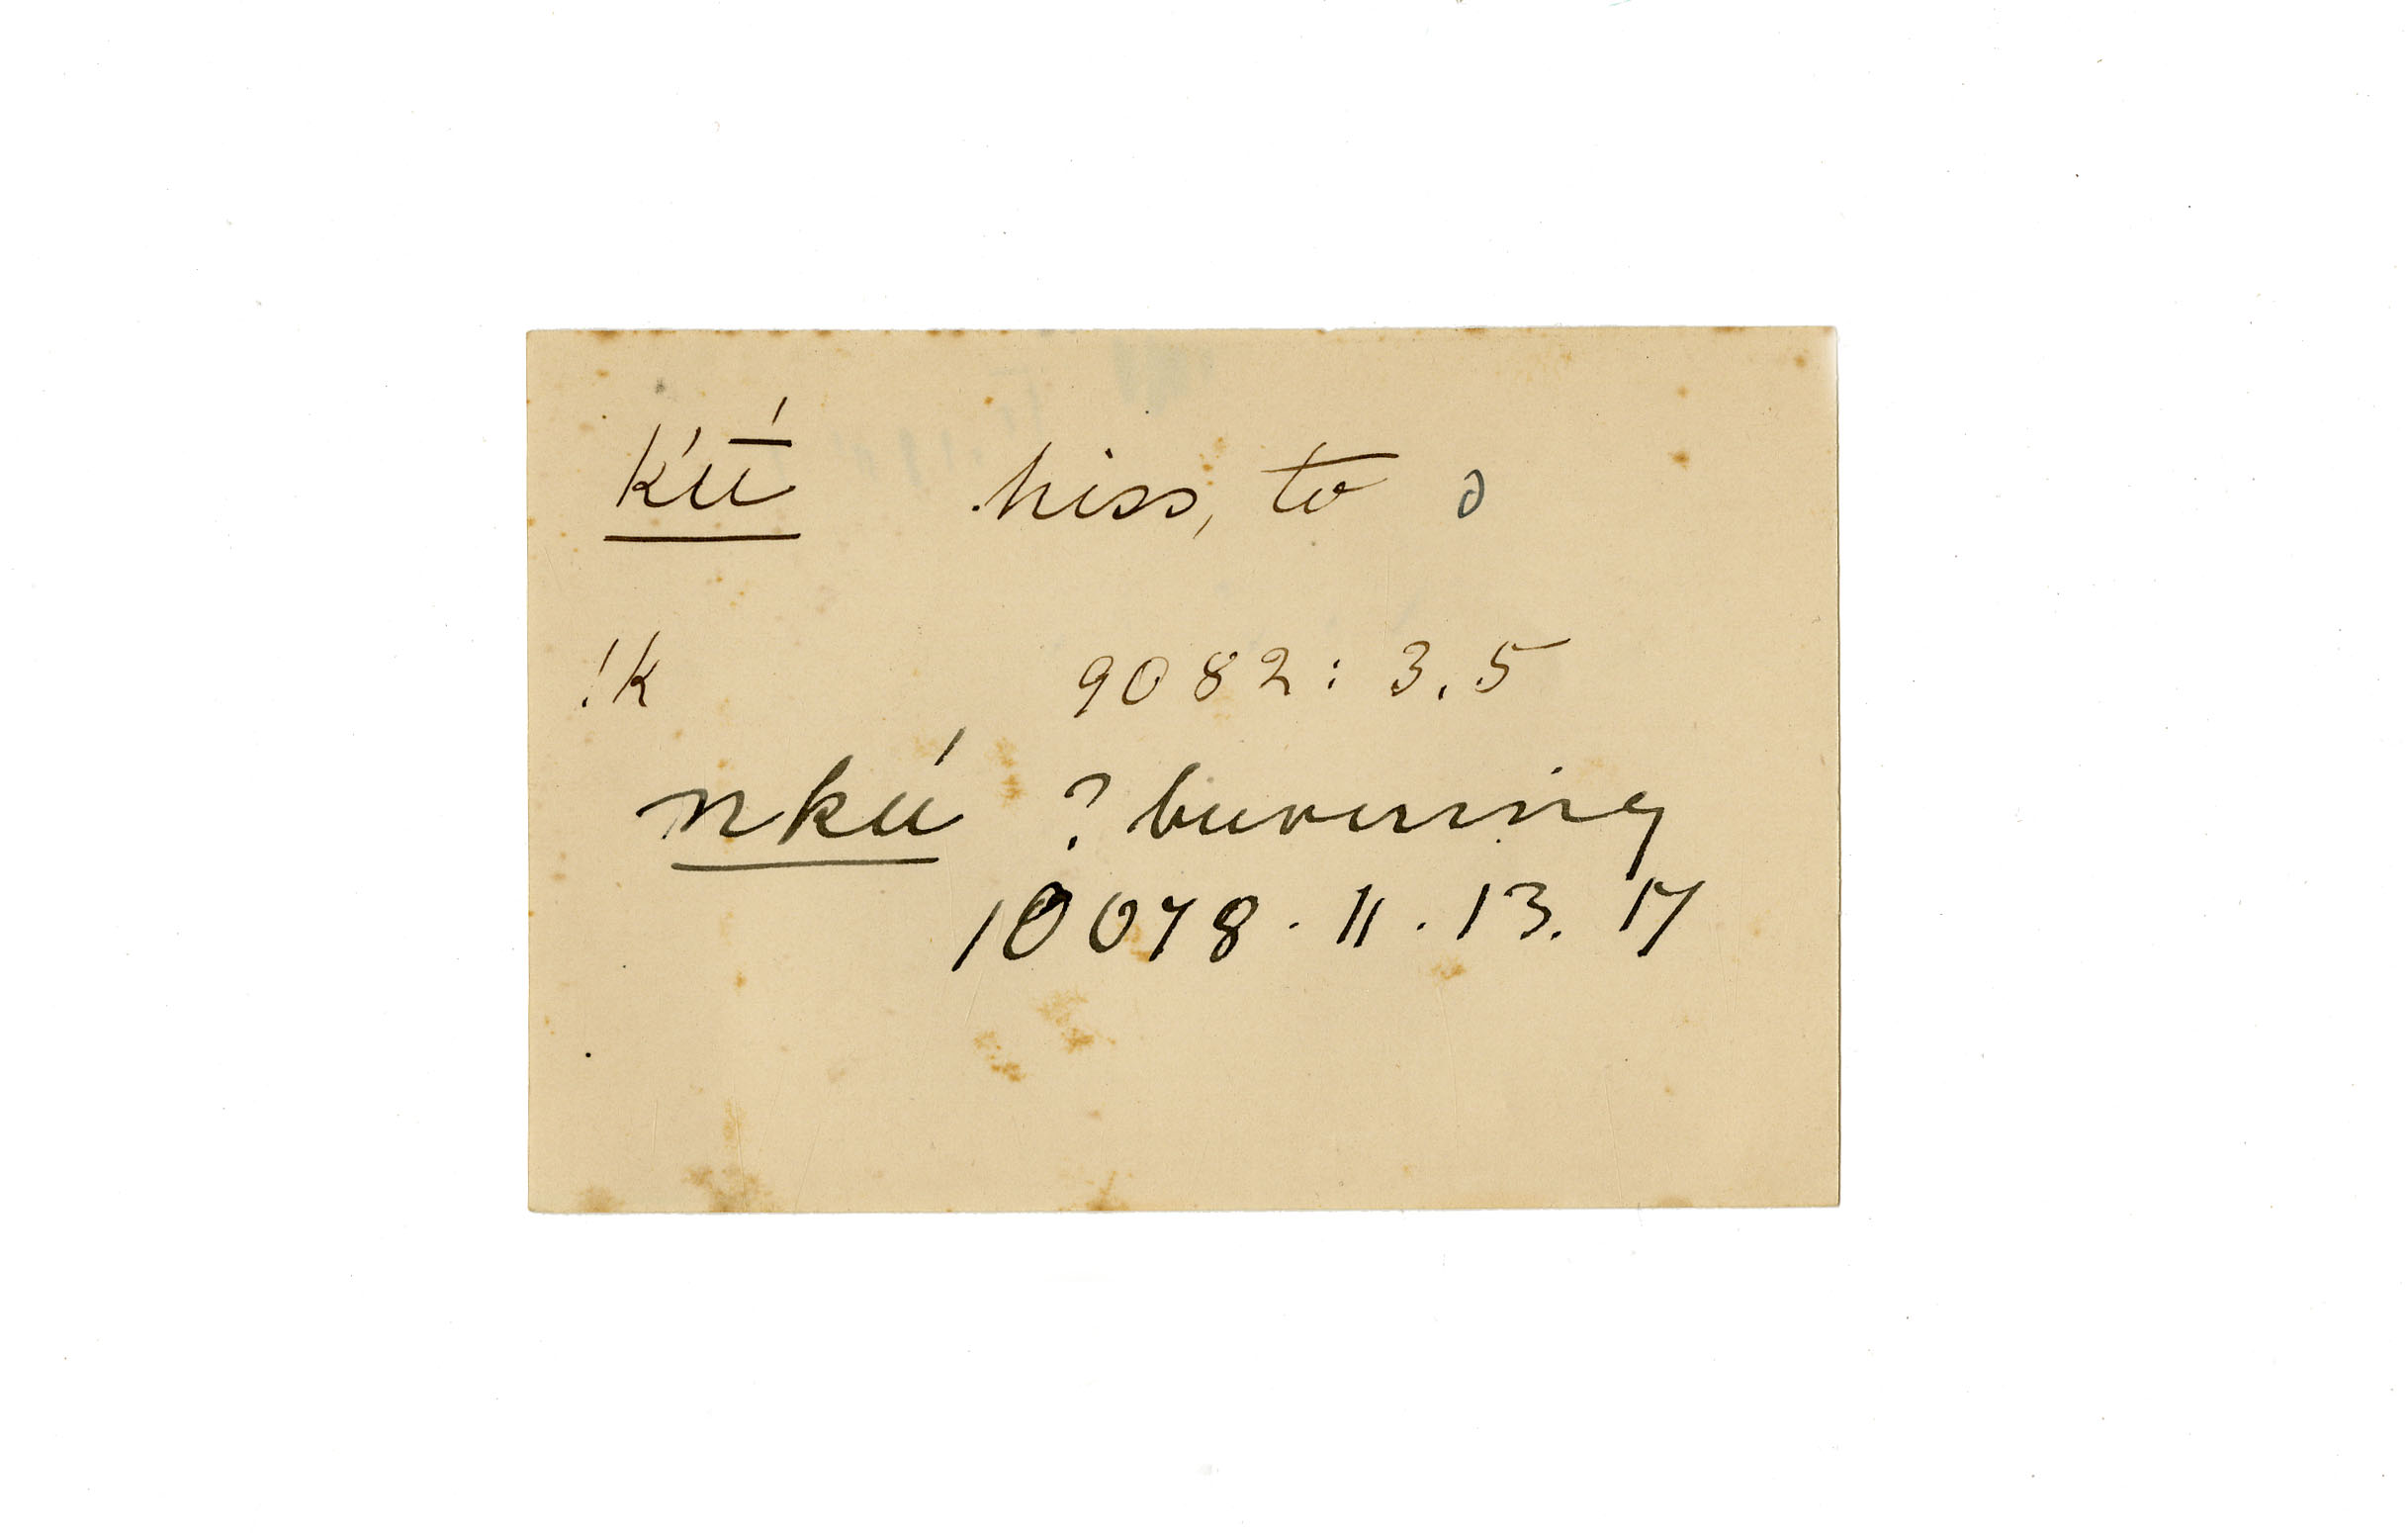 k'ū́ hiss, to ∂
!k 9082: 3.5
nkú ? burning
10078. 11. 13. 17